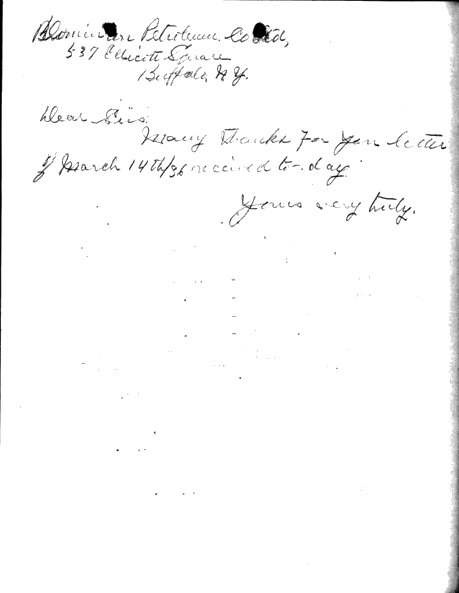 Petroleum Co Ltd,
537 Ellicott Square
Buffalo, N.Y.
Dear Sirs.
Many thanks for your letter
of March 14th/36 received to-day.
Yours very truly.